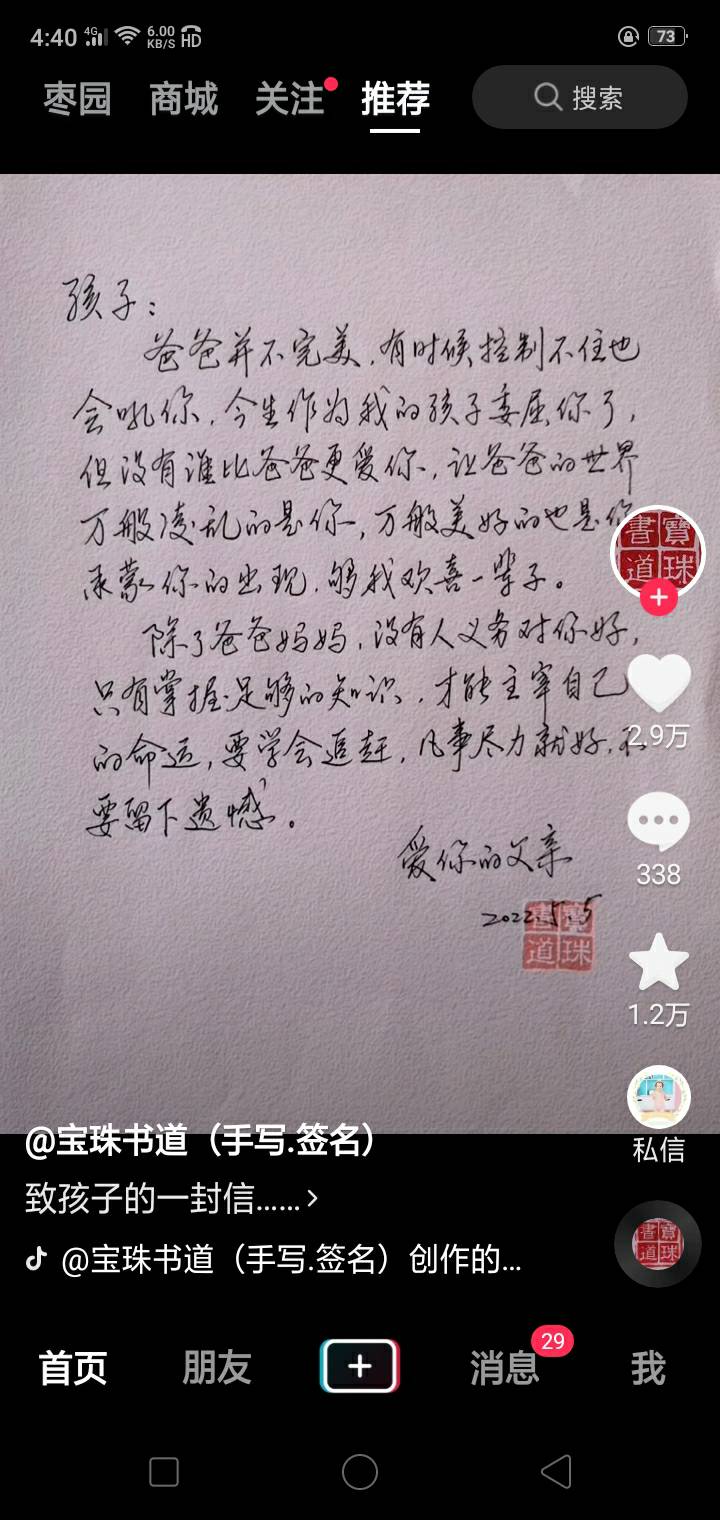 4:40 4G 6.00 KB/S HD 73
枣园 商城 关注 推荐 搜索
孩子：
爸爸并不完美，有时候控制不住也
会吼你，今生作为我的孩子委屈你了，
但没有谁比爸爸更爱你，让爸爸的世界
万般凌乱的是你，万般美好的也是你
承蒙你的出现，够我欢喜一辈子。
除了爸爸妈妈，没有人义务对你好，
只有掌握足够的知识，才能主宰自己
的命运，要学会追赶，凡事尽力就好，不
要留下遗憾。
爱你的父亲
2022.5.5
書寶
道珠
書寶
道珠
2.9万
338
1.2万
私信
@宝珠书道（手写.签名）
致孩子的一封信……
@宝珠书道（手写.签名）创作的...
書寶
道珠
首页 朋友 消息 29 我